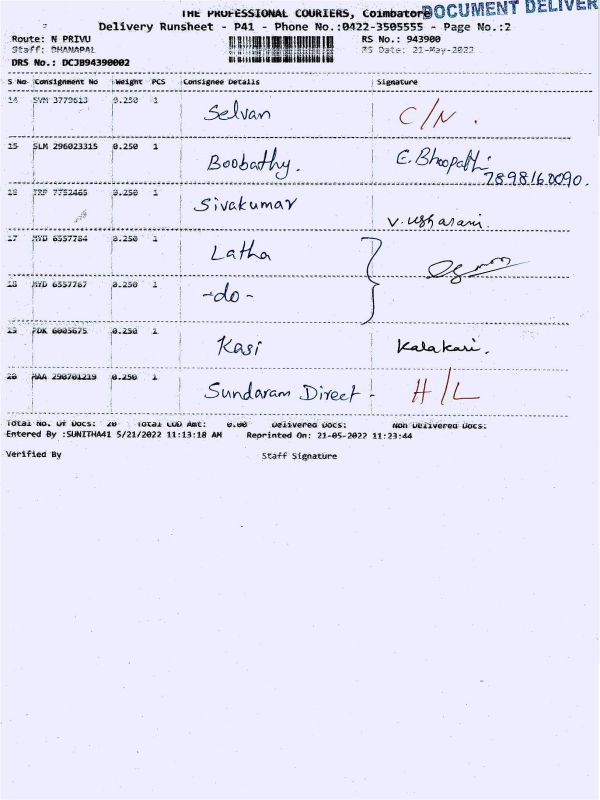 THE PROFESSIONAL COURIERS, Coimbatore DOCUMENT DELIVER
Delivery Runsheet - P41 - Phone No.:0422-3505555 - Page No.:2
Route: N PRIVU RS No.: 943900
Staff: DHANAPAL RS Date: 21-May-2022
DRS No.: DCJB94390002
S No Consignment No Weight PCS Consignee Details Signature
14 SVM 3779613 0.250 1 Selvan C/N.
15 SLM 296023315 0.250 1 Boobathy. E. Bhoopathi
7898160090.
16 TRP 7752465 0.250 1 Sivakumar
V. usharani.
17 MYD 6557784 0.250 1 Latha
18 MYD 6557767 0.250 1 -do-
19 PDK 6005675 0.250 1 Kasi Kalakari.
20 MAA 290701219 0.250 1 Sundaram Direct - H/L
Total No. Of Docs: 20 Total COD Amt: 0.00 Delivered Docs: Non Delivered Docs:
Entered By :SUNITHA41 5/21/2022 11:13:18 AM Reprinted On: 21-05-2022 11:23:44
Verified By Staff Signature